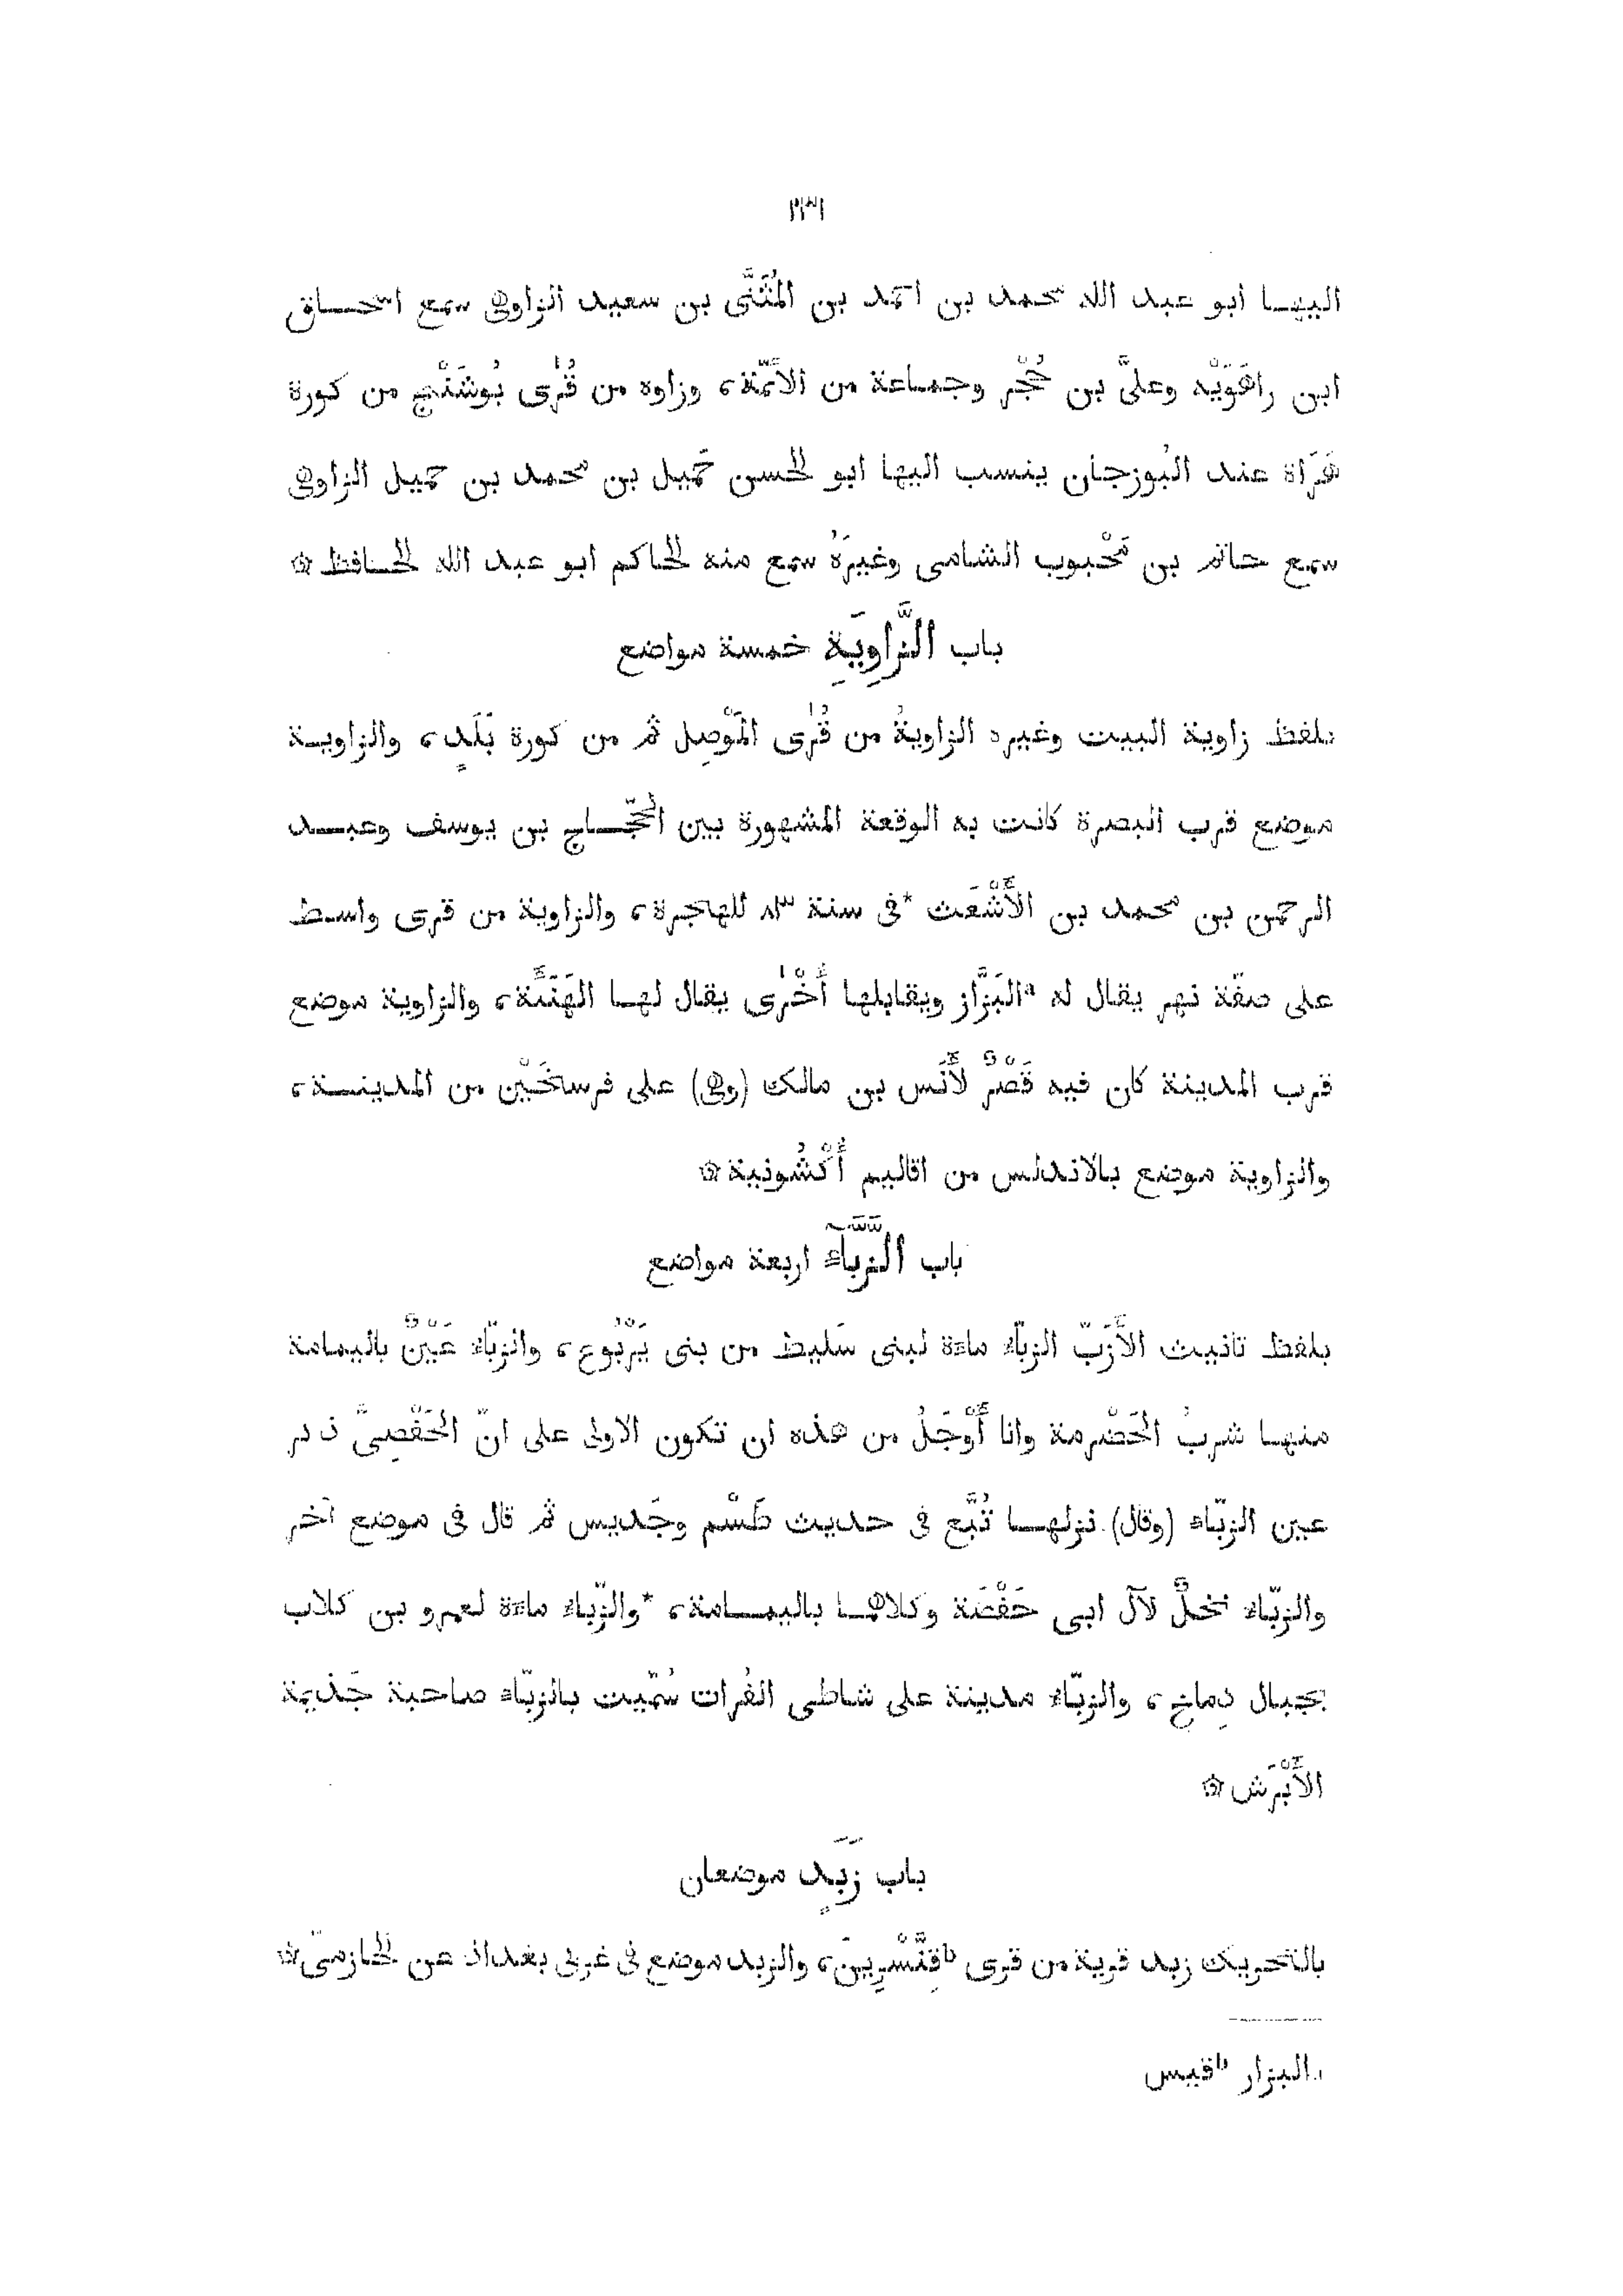 ٢٣١
اليهــا ابو عبد الله محمد بن احمد بن المُثَنَّى بن سعيد الزاوهى سمع اسحــاق
ابن راهَوَيْه وعلىّ بن حُجْر وجمــاعة من الأئمّة، وزاوه من قُرٰى بُوشَنْج من كورة
هَرَاة عند البُوزجان ينسب اليها ابو الحسن جَميل بن محمد بن جميل الزاوهى
سمع حاتم بن مَحْبوب الشامى وغيرَهُ سمع منه الحاكم ابو عبد الله الحــافظ ۞
باب الزَّاوِيَةِ خمسة مواضع
بلفظ زاوية البيت وغيره الزاويةُ من قُرٰى المَوْصِل ثم من كورة بَلَدٍ، والزاويــة
موضع قرب البصرة كانت به الوقعة المشهورة بين الحَجّــاج بن يوسف وعبــد
الرحمن بن محمد بن الأَشْعَث *فى سنة ٨٣ للهجرة، والزاوية من قرى واسـط
على ضفّة نهر يقال له ªالبَزَّاز ويقابلها أُخْرٰى يقال لهــا الهَنَئَة، والزاوية موضع
قرب المدينة كان فيه قَصْرٌ لأَنَس بن مالك (رضى) على فرسخَيْن من المدينــة،
والزاوية موضع بالاندلس من اقاليم أُكْشُونية ۞
باب الزَّبَّآءِ اربعة مواضع
بلفظ تانيث الأَزَبّ الزبّاء ماءة لبنى سَليط من بنى يَرْبُوع، والزبّاء عَيْنٌ باليمامة
منهــا شربُ الخَضْرمة وانا أَوْجَلُ من هذه ان تكون الاولى على انّ الحَفْصِىَّ ذكر
عين الزبّاء (وقال) نزلهــا تُبَّع فى حديث طَسْم وجَديس ثم قال فى موضع آخر
والزبّاء نخلٌ لآل ابى حَفْصَة وكلاهمــا باليمــامة، *والزّباء ماءة لعمرو بن كلاب
بجبال دِماخ، والزبّاء مدينة على شاطى الفُرات سُمّيت بالزبّاء صاحبة جَذيمة
الأَبْرَش ۞
باب زَبَدٍ موضعان
بالتحريك زبد قرية من قرى ᵇقِنَّسْرِينَ، والزبد موضع فى غربى بغداذ عن الحازمىّ ۞
البزار ᵇقيس